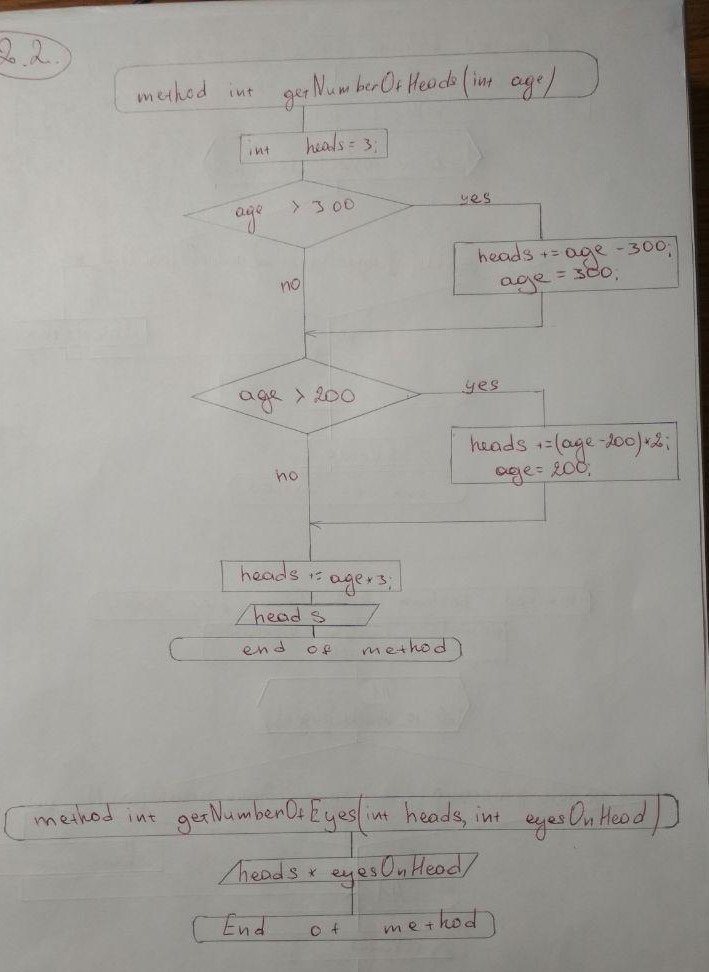 2.2.
method int getNumberOfHeads(int age)
int heads = 3;
age > 300
yes
heads += age - 300;
age = 300;
no
age > 200
yes
heads +=(age-200)*2;
age = 200;
no
heads += age*3;
heads
end of method
method int getNumberOfEyes(int heads, int eyesOnHead)
heads * eyesOnHead
End of method